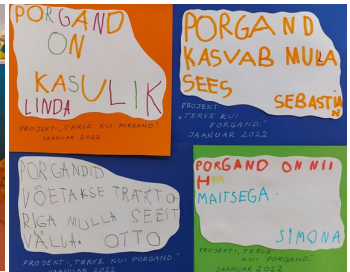 PORGAND
ON
KASULIK
LINDA
PROJEKT „TERVE KUI PORGAND"
JAANUAR 2022
PORGAND
KASVAB MULLA
SEES
SEBASTIAN
PROJEKT
„TERVE KUI
PORGAND."
JAANUAR 2022
PORGANDID
VÕETAKSE TRAKTO-
RIGA MULLA SEEST
VÄLJA. OTTO
PROJEKT „TERVE KUI PORGAND."
JAANUAR 2022
PORGAND ON NII
HEA
MAITSEGA
SIMONA
PROJEKT „TERVE
KUI PORGAND."
JAANUAR 2022